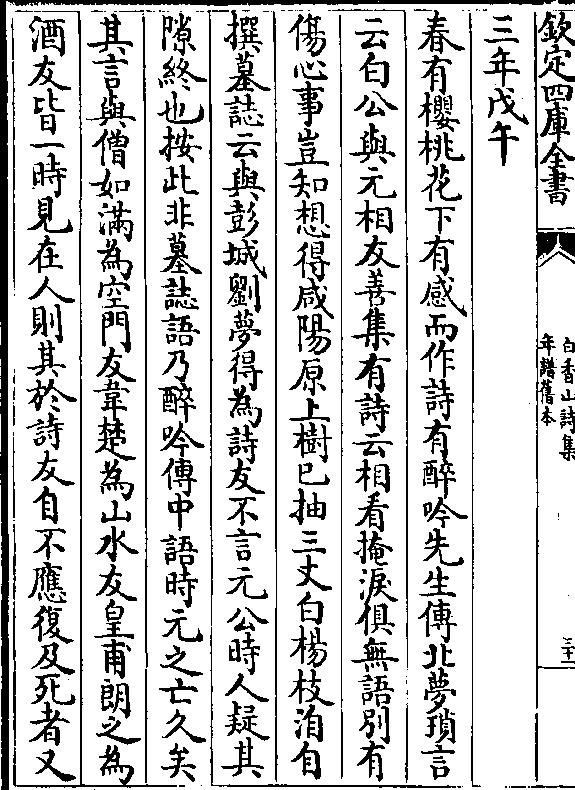 欽定四庫全書
白香山詩集
年譜舊本
三十一
三年戊午
春有櫻桃花下有感而作詩有醉吟先生傳北夢瑣言
云白公與元相友善集有詩云相看掩淚俱無語別有
傷心事豈知想得咸陽原上樹已抽三丈白楊枝洎自
撰墓誌云與彭城劉夢得為詩友不言元公時人疑其
隙終也按此非墓誌語乃醉吟傳中語時元之亡久矣
其言與僧如滿為空門友韋楚為山水友皇甫朗之為
酒友皆一時見在人則其於詩友自不應復及死者又